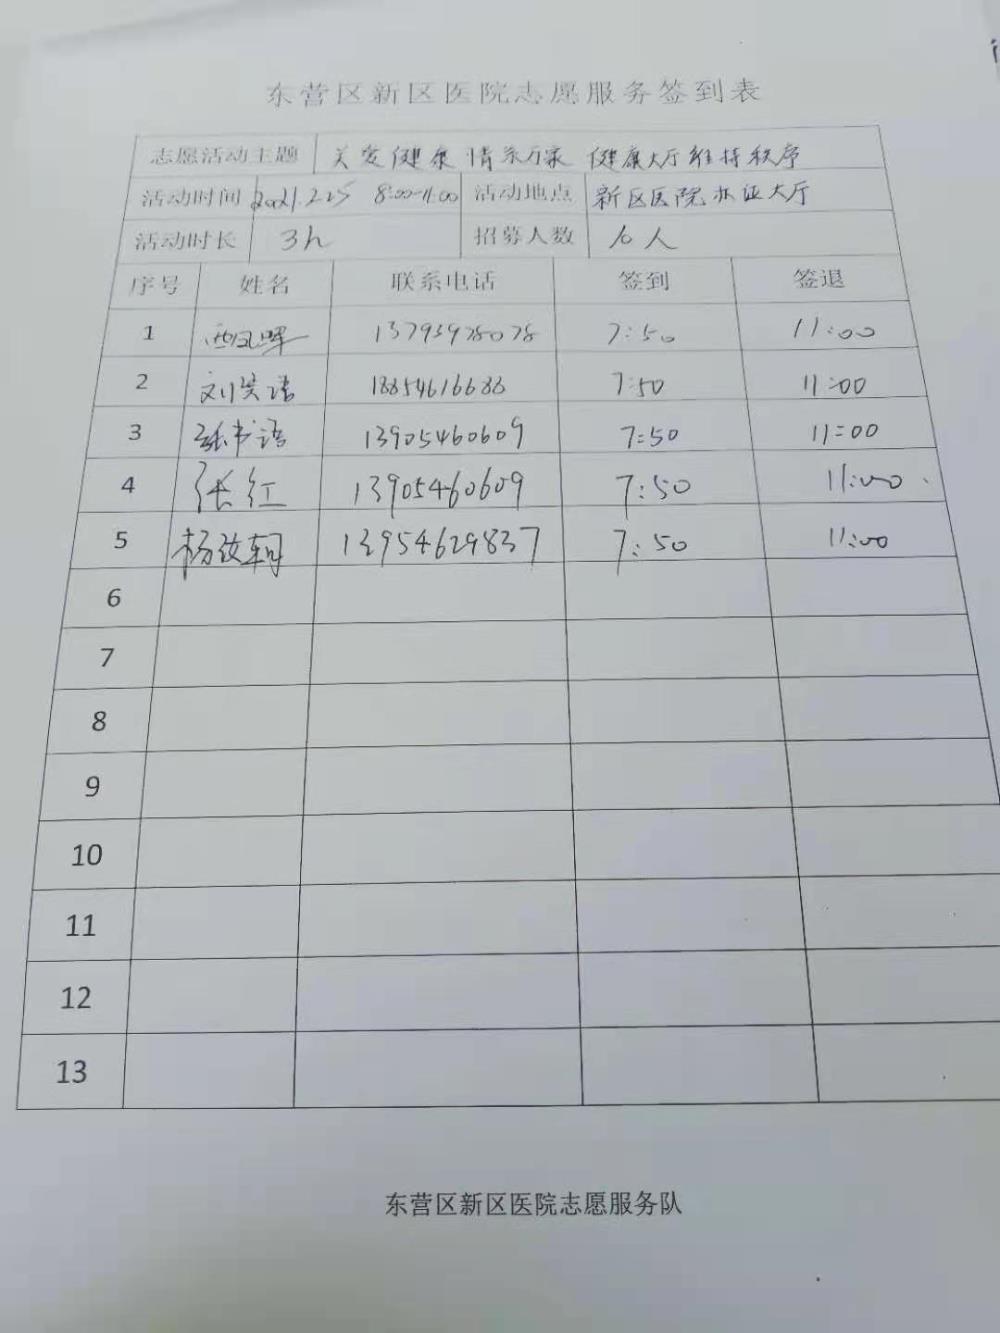 东营区新区医院志愿服务签到表
志愿活动主题 关爱健康 情系万家 健康大厅维持秩序
活动时间 2021.2.25 8:00-11:00 活动地点 新区医院办证大厅
活动时长 3h 招募人数 10人
序号 姓名 联系电话 签到 签退
1 13793978078 7:50 11:00
2 刘笑语 18854616688 7:50 11:00
3 张书语 13905460609 7:50 11:00
4 张红 13905460609 7:50 11:00
5 杨改 13954629837 7:50 11:00
6
7
8
9
10
11
12
13
东营区新区医院志愿服务队